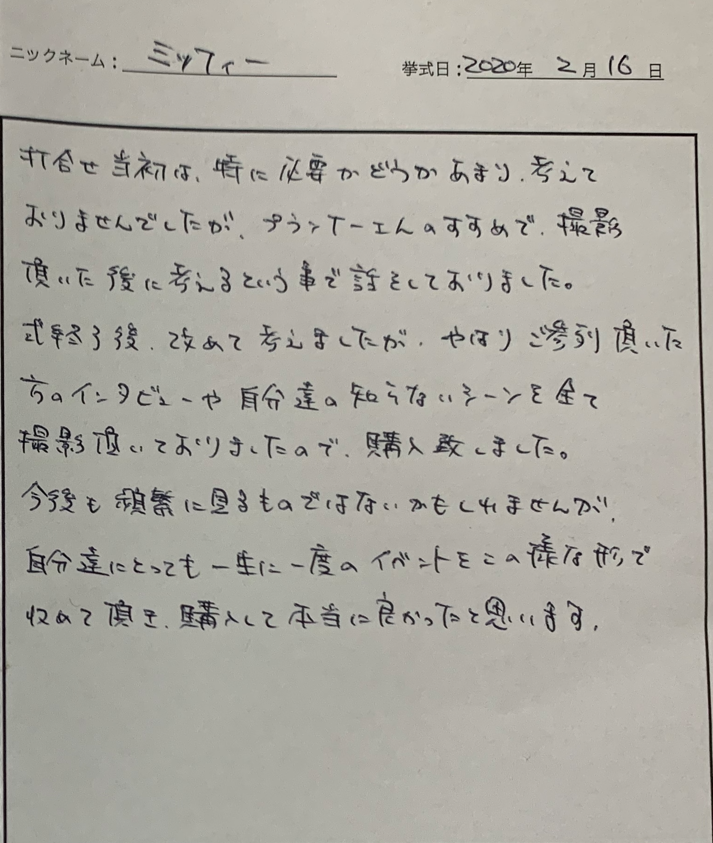 ニックネーム: ミッフィー 挙式日:2020年 2月16日
打合せ当初は、特に必要かどうかあまり、考えて
おりませんでしたが、プランナーさんのすすめで、撮影
頂いた後に考えるという事で話をしておりました。
式終了後、改めて考えましたが、やはりご参列頂いた
方のインタビューや自分達の知らないシーンを全て
撮影頂いておりましたので、購入致しました。
今後も頻繁に見るものではないかもしれませんが、
自分達にとっても一生に一度のイベントをこの様な形で
収めて頂き、購入して本当に良かったと思います。